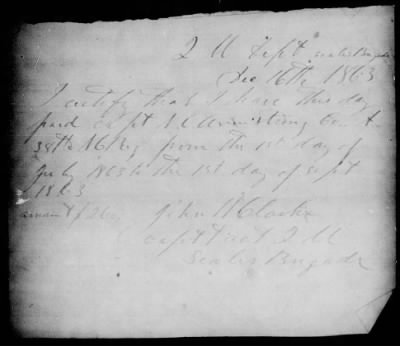 Q M Dept Scales Brigade
Dec 16th 1863
I certify that I have this day
paid Capt Armstrong Co
38th N C Reg from the 1st day of
July 1863 to the 1st day of Sept
1863
amount $ 260 John W Clark
Capt & act Q M
Scales Brigade